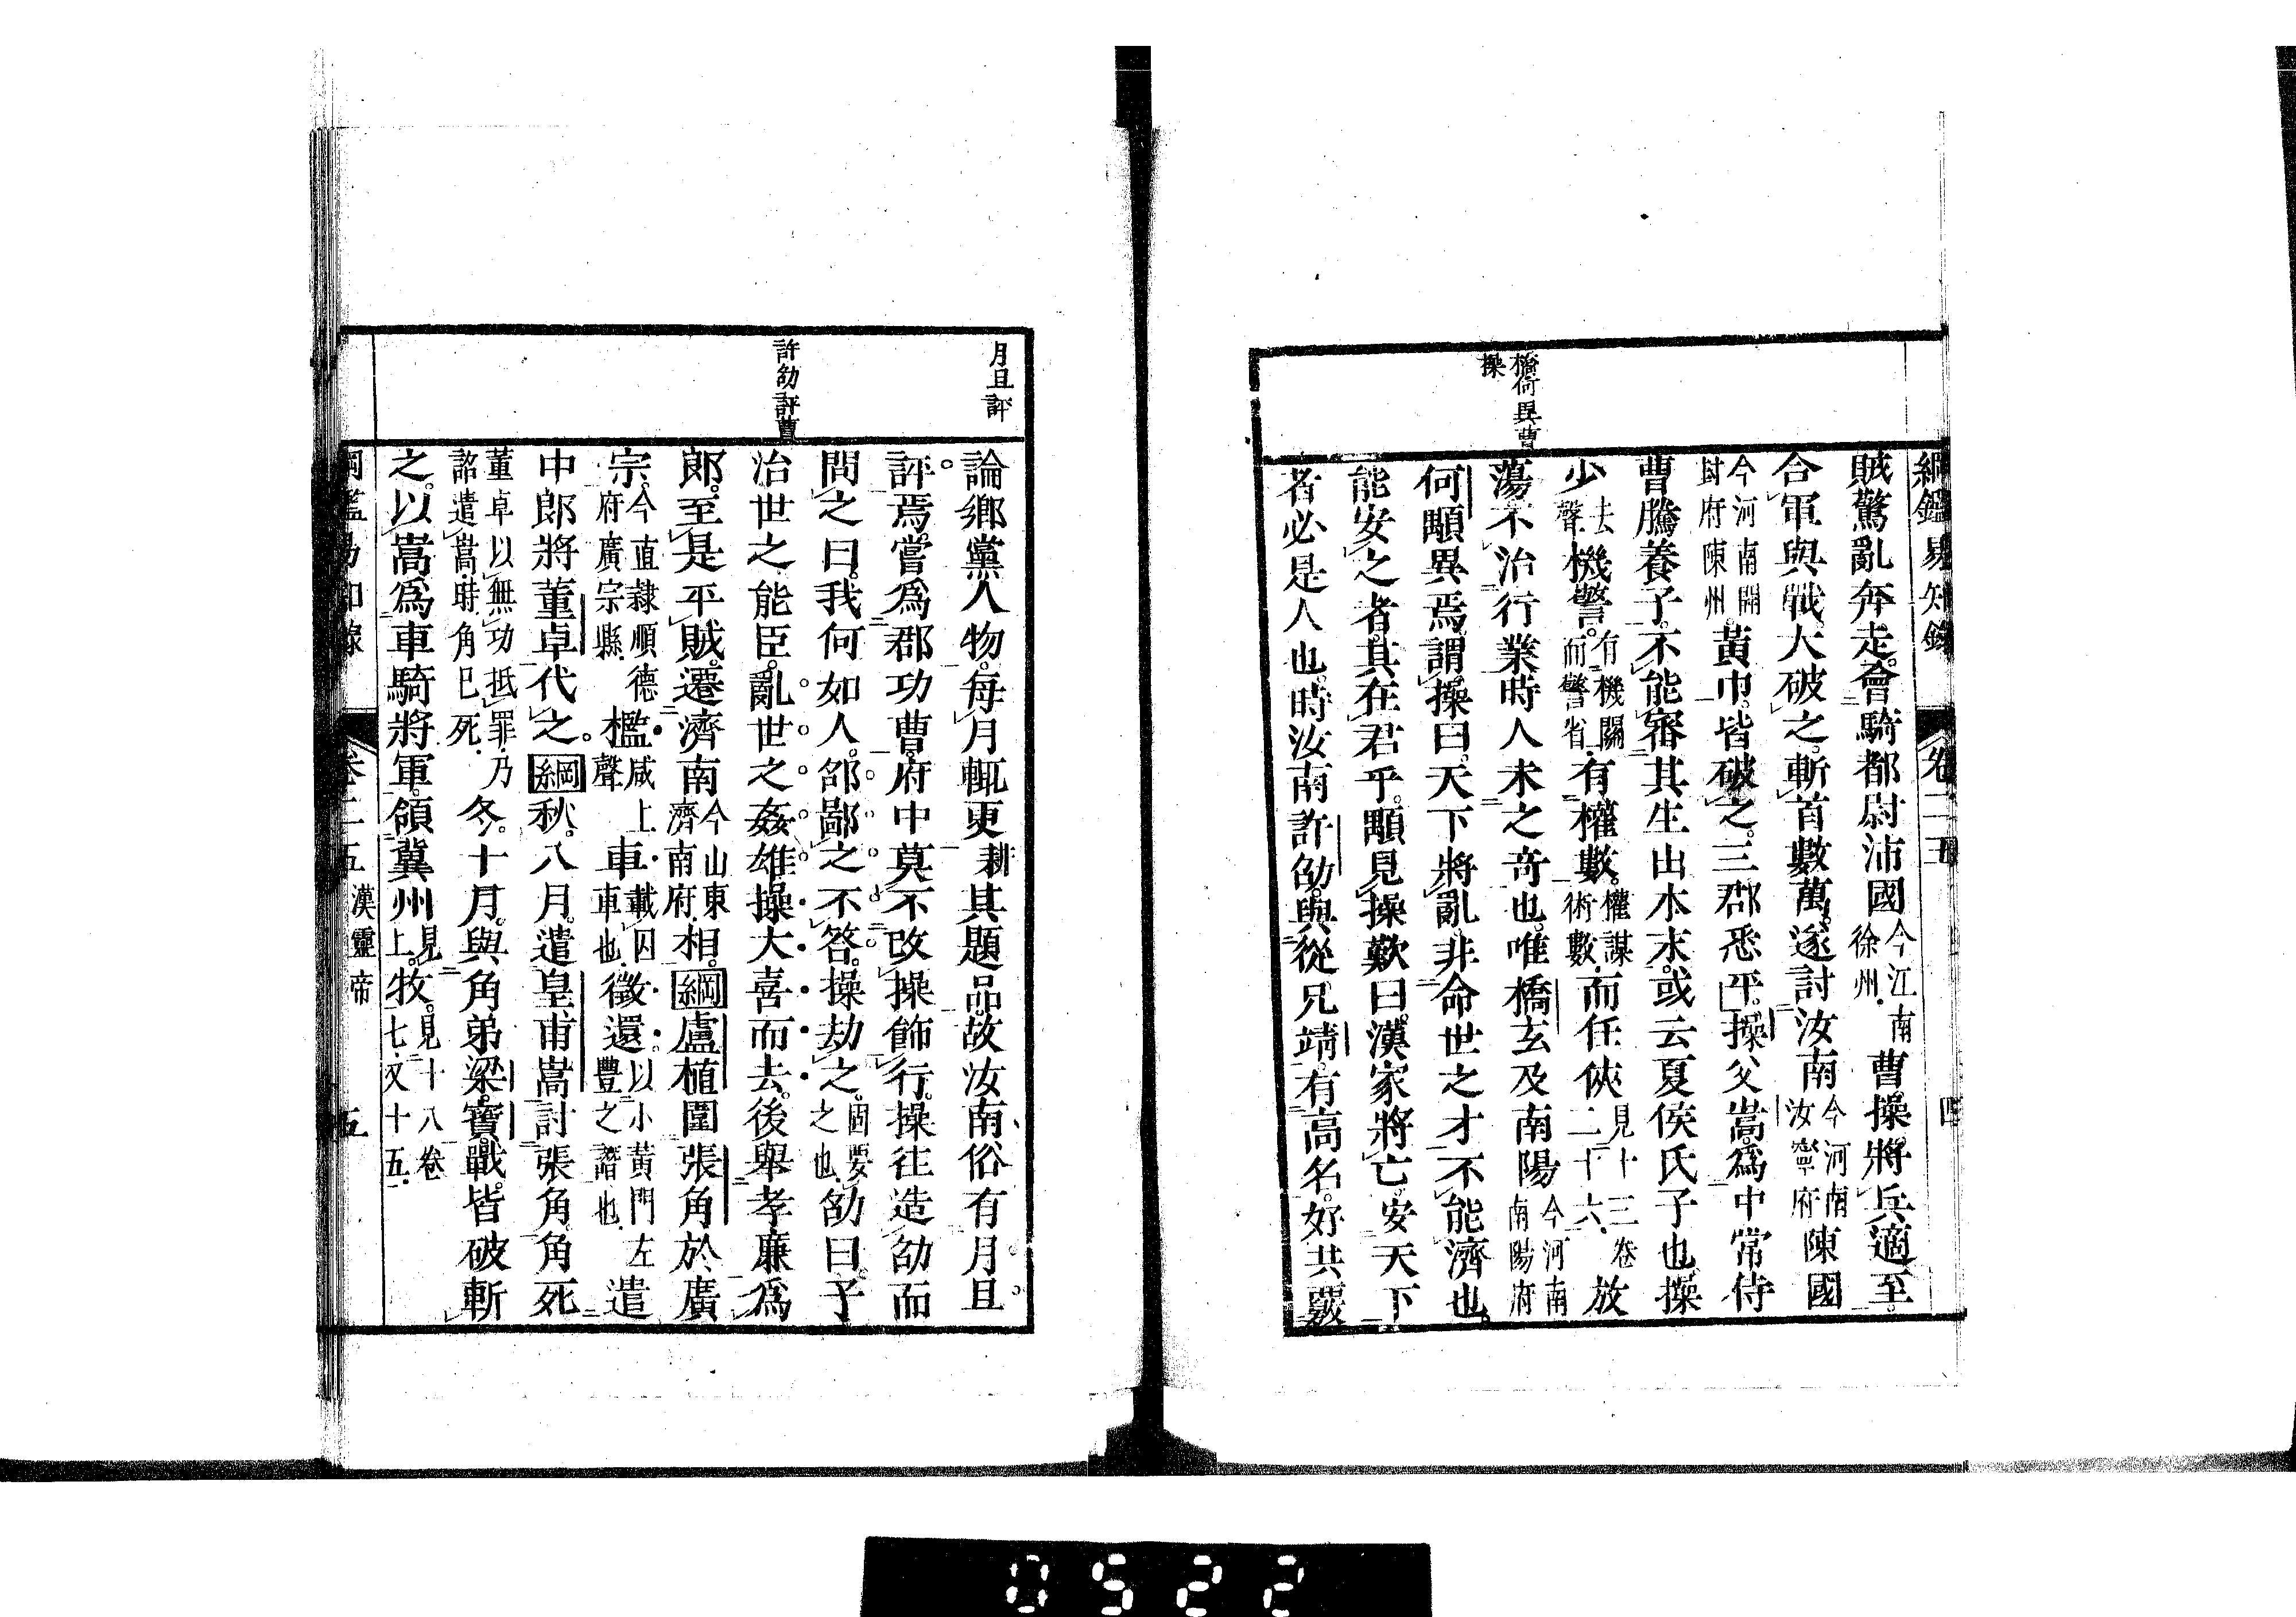 綱鑑易知錄 卷二五 四
橋何異曹
操
賊驚亂奔走會騎都尉沛國今江南徐州曹操將兵適至
合軍與戰大破之斬首數萬遂討汝南今河南汝寧府陳國
今河南開封府陳州黃巾皆破之三郡悉平操父嵩爲中常侍
曹騰養子不能審其生出本末或云夏侯氏子也操
少去聲機警有機關而警省有權數權謀術數而任俠見十三卷二十六放
蕩不治行業時人未之奇也唯橋玄及南陽今河南南陽府
何顒異焉謂操曰天下將亂非命世之才不能濟也
能安之者其在君乎顒見操歎曰漢家將亡安天下
者必是人也時汝南許劭與從兄靖有高名好共覈
月旦評
許劭評曹
論鄉黨人物每月輒更耕其題品故汝南俗有月旦
評焉嘗爲郡功曹府中莫不改操飾行操往造劭而
問之曰我何如人劭鄙之不答操劫之固要之也劭曰子
治世之能臣亂世之姦雄操大喜而去後舉孝廉爲
郎至是平賊遷濟南今山東濟南府相綱盧植圍張角於廣
宗今直隸順德府廣宗縣檻咸上聲車載囚車也徵還以小黃門左豐之譖也遣
中郎將董卓代之綱秋八月遣皇甫嵩討張角角死
董卓以無功抵罪乃詔遣嵩時角已死冬十月與角弟梁寶戰皆破斬
之以嵩爲車騎將軍領冀州見上牧見十八卷七又十五
綱鑑易知錄 卷二五 漢靈帝 五
0522